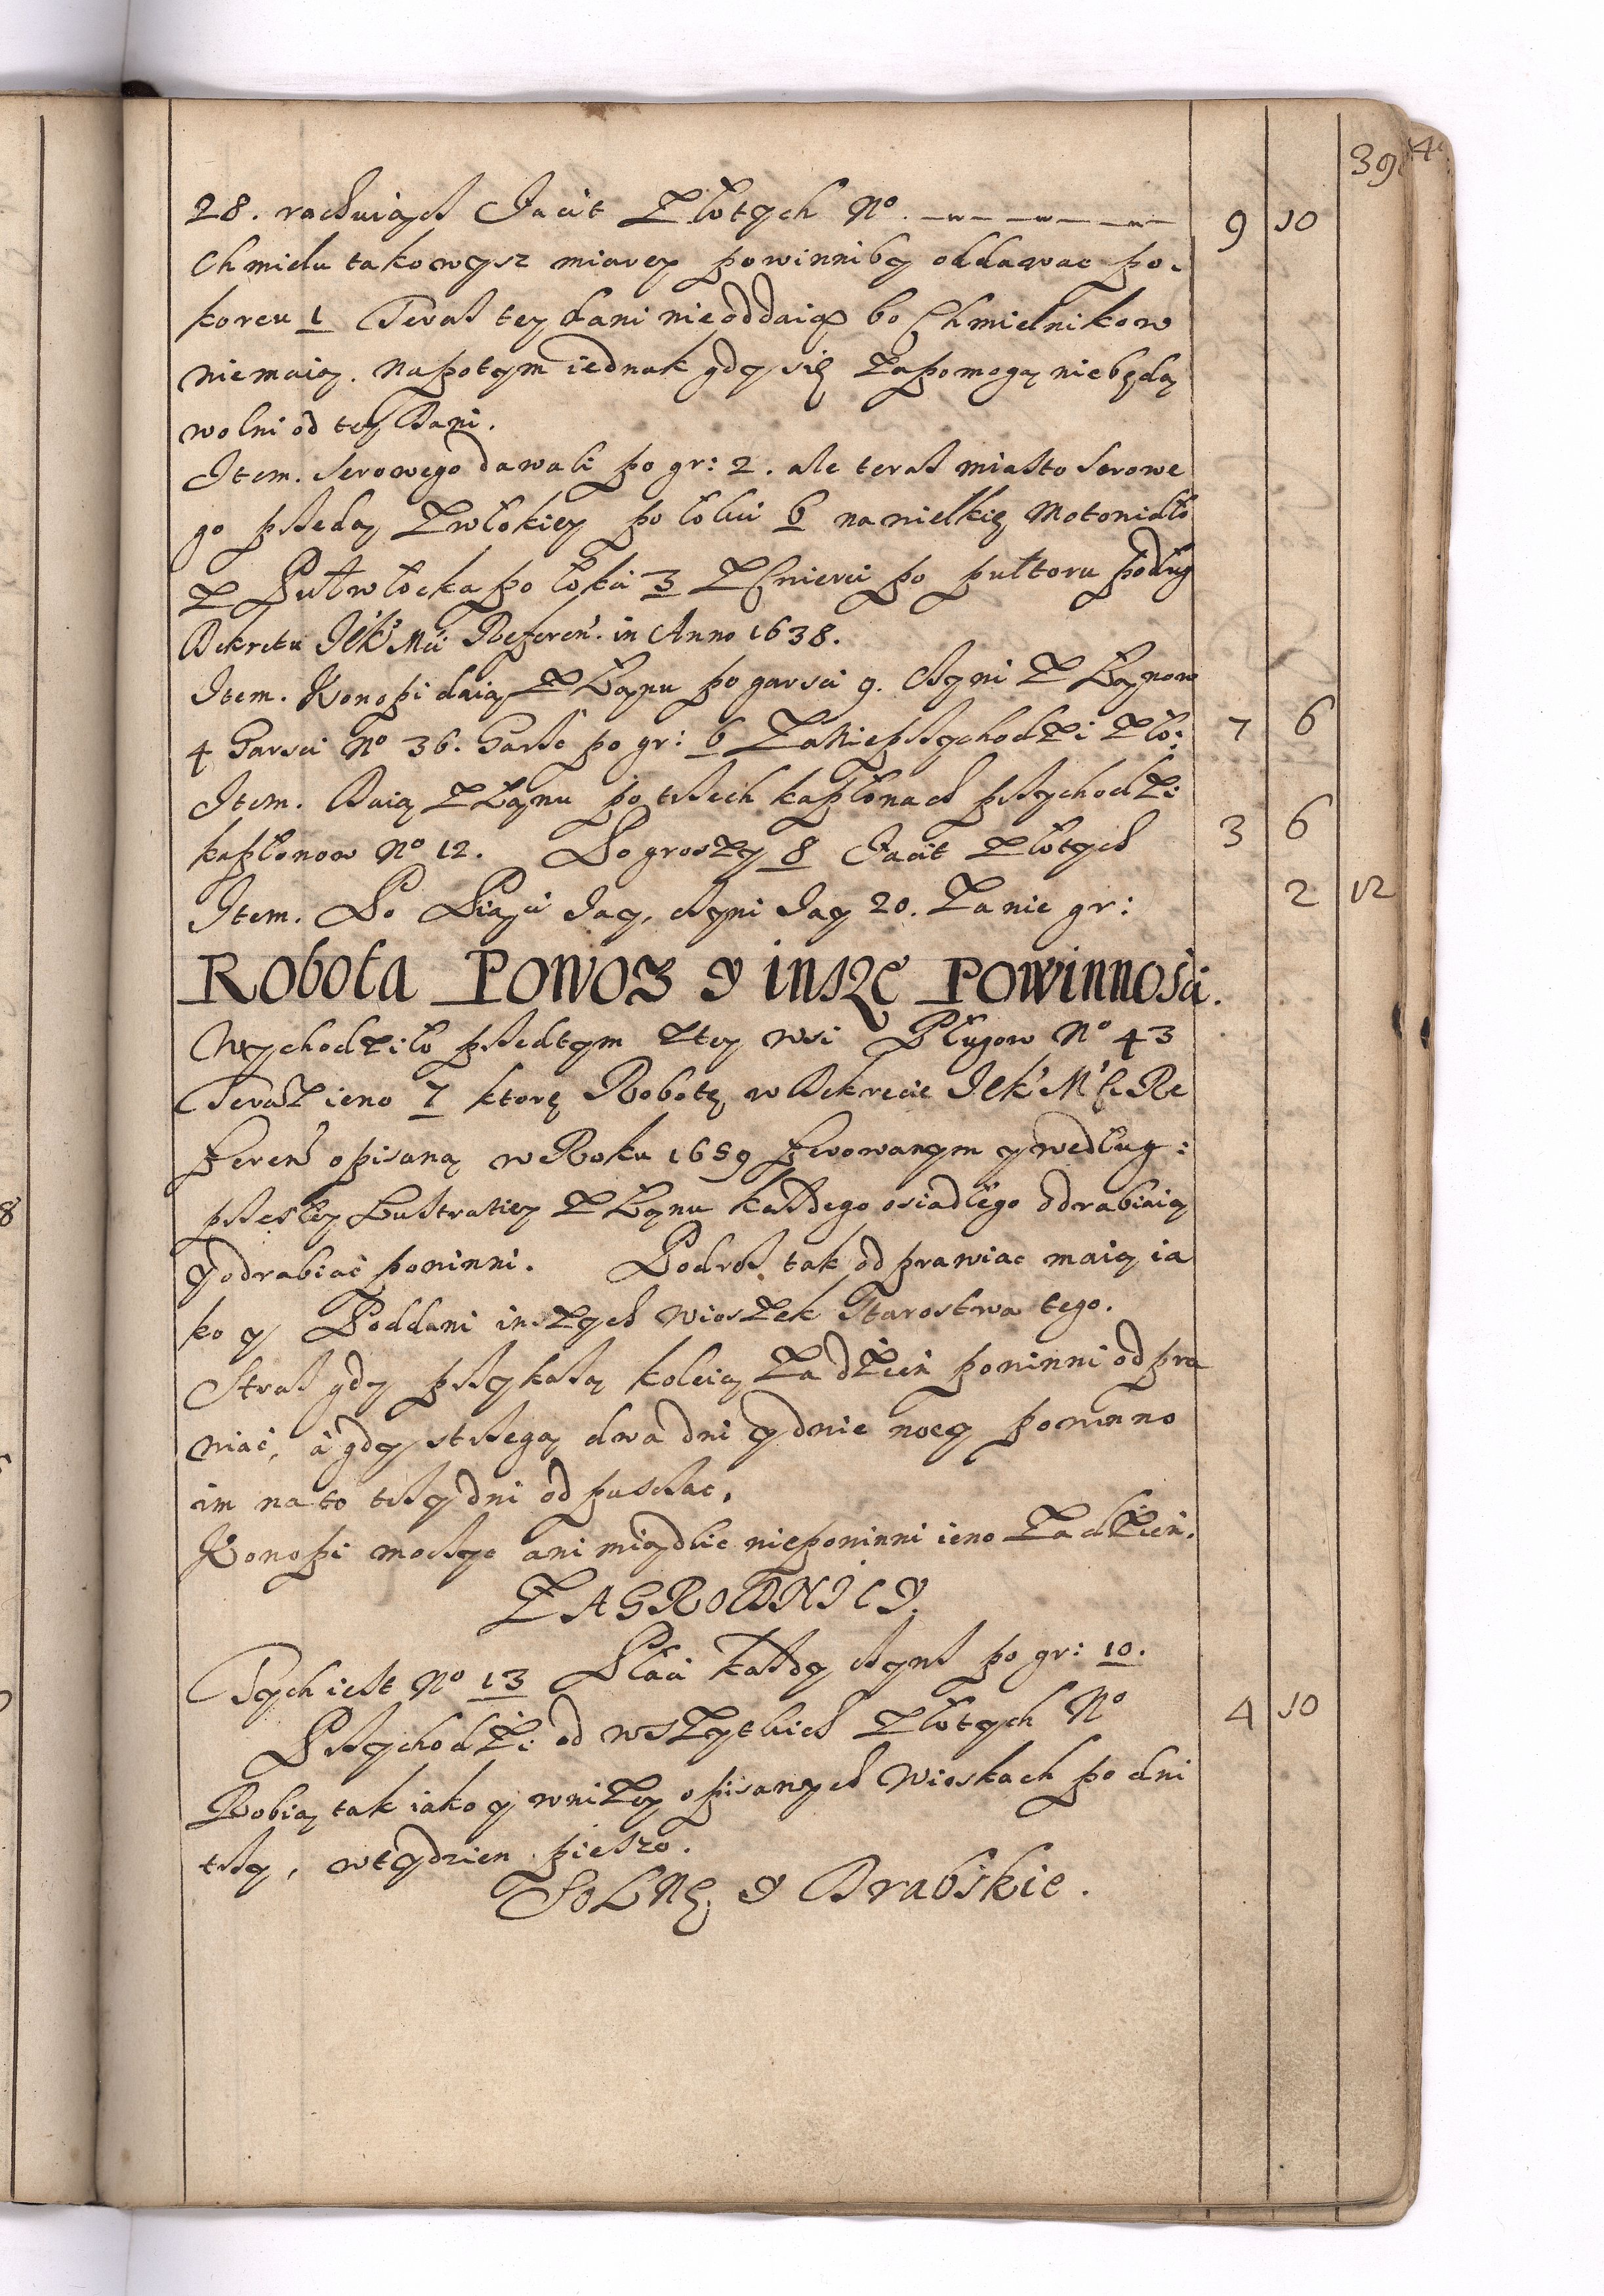 39
28. rachuiąc Facit Złotych No. 9 10
Chmielu takowysz miarey powinniby oddawac po.
korcu 1 Teraz tey dani nie oddaią bo Chmielnikow
niemaią. napotym iednak gdy się zapomogą niebędą
wolni od tey Dani.
Item. Serowego dawali po gr: 2. ale teraz miasto serowe
go przedą z włokiey po łokci 6 na wielkie Motowidło
z Pułwłocka po łokci 3 z Cwierci po pułtoru podług
Dekretu JEK Mci Referen. in Anno 1638.
Item. Konopi daią z Łanu po garsci 9. Czyni z Łanow
4 Garsci No 36. Garsc po gr: 6 Zakie przychodzi zło: 7 6
Item. Daią z Łanu po trzech kapłonach przychodzi
kapłonow No 12. Po groszy 8 Facit Złotych 3 6
Item. Po Piąci Jay, czyni Jay 20. Zanie gr: 2 12
Robota Powoz y insze Powinnosci.
Wychodziło przedtym z tey wsi Pługow No 43
Teraz ieno 7 ktorę Robotę w Dekrecie JEK Mści Re
feren opisaną w Roku 1659 ferowanym y według:
przeszłey Lustratiey z Łanu każdego osiadłego odrabiaią
y odrabiać powinni. Podroż tak odprawiac maią ia
ko y Poddani inszych wioszek Starostwa tego.
Straż gdy przykażą kolcią za dzień powinni odpra
wiać, á gdy strzegą dwa dni y dwie nocy powinno
im na to trzy dni odpuszczac.
Konopi moczyc ani międlic niepowinni ieno za dzień.
ZAGRODNICY.
Tych iest No 13 Płaci każdy czynsz po gr: 10.
Przychodzi od wszytkich złotych No 4 10
Robią tak iako y w niżey opisanych Wioskach po dni
trzy, w tydzien pieszo.
SOLNE y Drabskie.